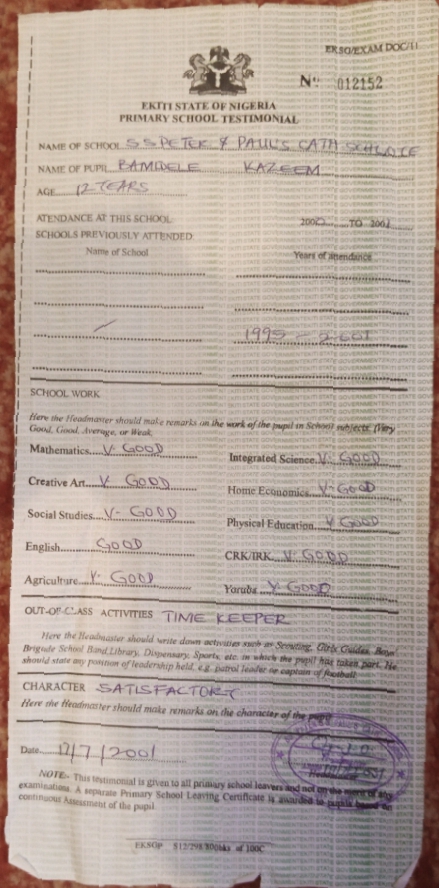 EKSG/EXAM DOC/11
Nº 012152
EKITI STATE OF NIGERIA
PRIMARY SCHOOL TESTIMONIAL
NAME OF SCHOOL S S PETER & PAUL'S CATH
NAME OF PUPIL BAMIDELE KAZEEM
AGE 12 YEARS
ATENDANCE AT THIS SCHOOL 2000 TO 2001
SCHOOLS PREVIOUSLY ATTENDED
Name of School Years of atendance
1995 - 2001
SCHOOL WORK
Here the Headmaster should make remarks on the work of the pupil in School subjects. (Very
Good, Good, Average, or Weak
Mathematics V. GOOD Integrated Science V. GOOD
Creative Art V. GOOD Home Economics V. GOOD
Social Studies V. GOOD Physical Education V GOOD
English GOOD CRK/IRK V. GOOD
Agriculture V. GOOD Yoruba V. GOOD
OUT-OF-CLASS ACTIVITIES TIME KEEPER
Here the Headmaster should write down activities such as Scouting, Girls Guides, Boys'
Brigade School Band, Library, Dispensary, Sports, etc. in which the pupil has taken part. He
should state any position of leadership held, e.g. patrol leader or captain of football
CHARACTER SATISFACTORY
Here the Headmaster should make remarks on the character of the pupil
Date 17/7/2001
NOTE:- This testimonial is given to all primary school leavers and not on the merit of any
examinations. A separate Primary School Leaving Certificate is awarded to pupils based on
continuous Assessment of the pupil
EKSGP 512/298/800bks of 100C